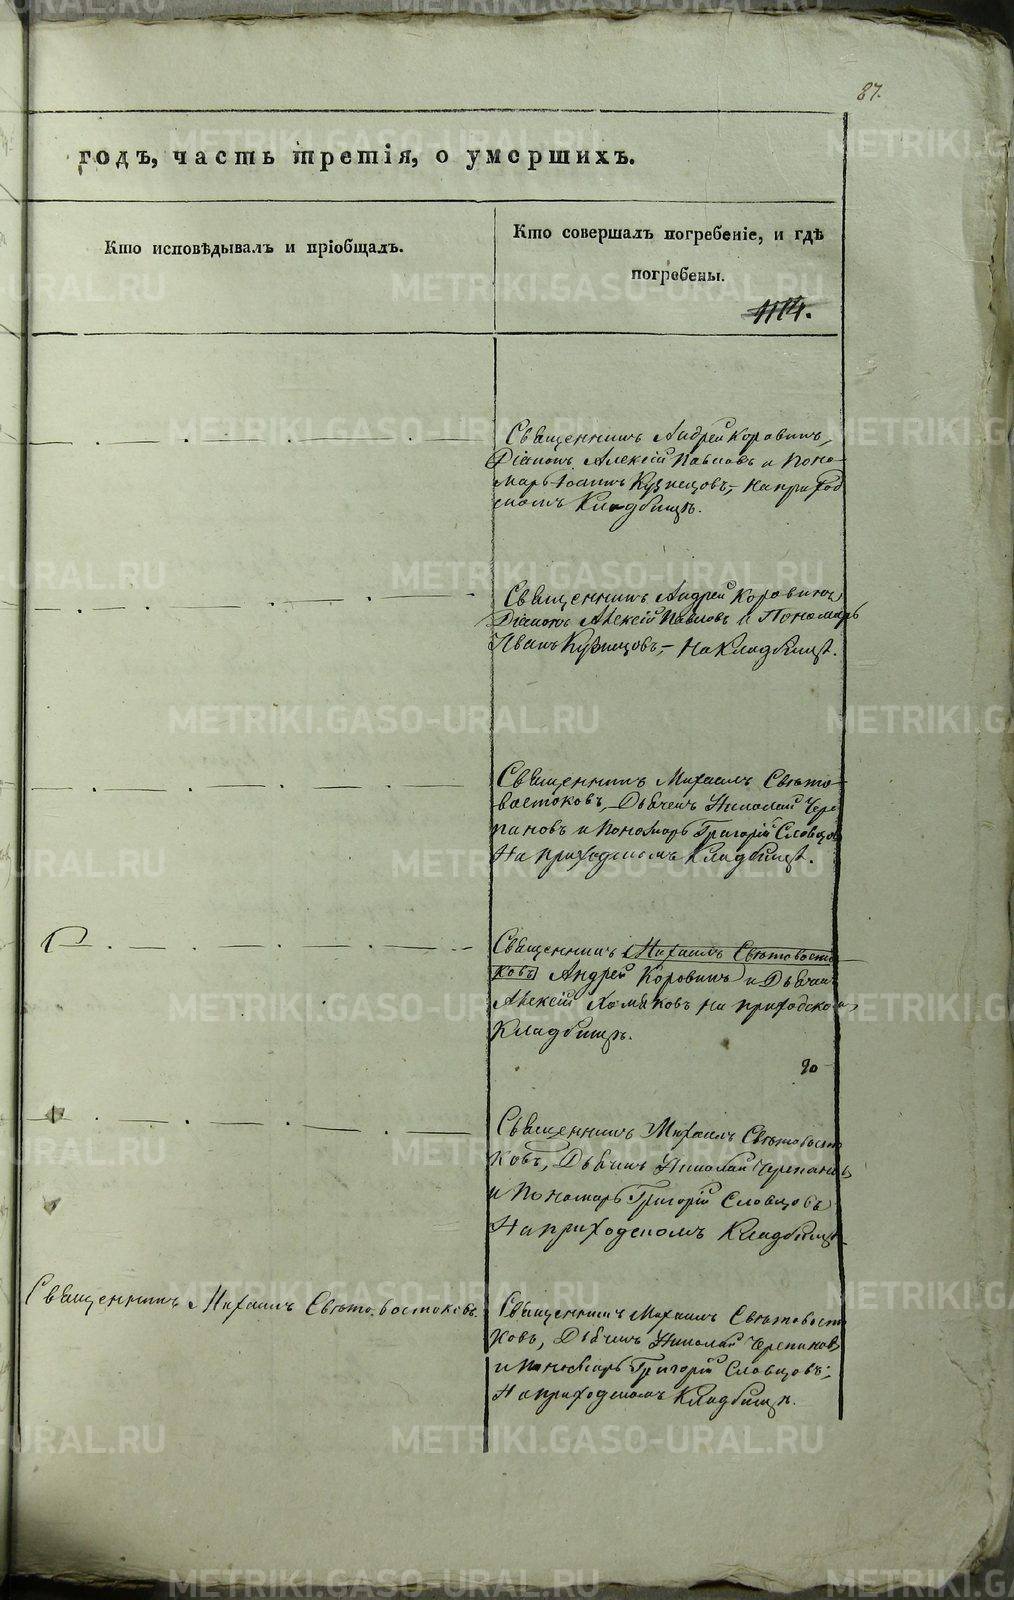 87.
годъ, часть третія, о умершихъ.
Кто исповѣдывалъ и пріобщалъ.
Кто совершалъ погребеніе, и гдѣ
погребены.
1114.
Священникъ Андрей Коровинъ,
Діаконъ Алексій Павловъ и Поно-
марь Іоаннъ Кузнецовъ, – на приход
скомъ Кладбищѣ.
Священникъ Андрей Коровинъ
Діаконъ Алексій Павловъ и Пономарь
Иванъ Кузнецовъ, – на Кладбищѣ.
Священникъ Михаилъ Свѣто-
востоковъ, Дьячекъ Николай Чере
пановъ и Пономарь Григорій Словцовъ
На приходскомъ Кладбищѣ.
Священникъ Михаилъ Свѣтовосто
ковъ Андрей Коровинъ и Дьячекъ
Алексій Хомяковъ на приходском
Кладбищѣ.
20
Священникъ Михаилъ Свѣтовосто
ковъ, Дьячекъ Николай Черепановъ
и Пономарь Григорій Словцовъ
На приходскомъ Кладбищѣ
Священникъ Михаилъ Свѣтовостоковъ.
Священникъ Михаилъ Свѣтовосто
ковъ, Дьячекъ Николай Черепановъ
и Пономарь Григорій Словцовъ;
На приходскомъ Кладбищѣ.
METRIKI.GASO-URAL.RU